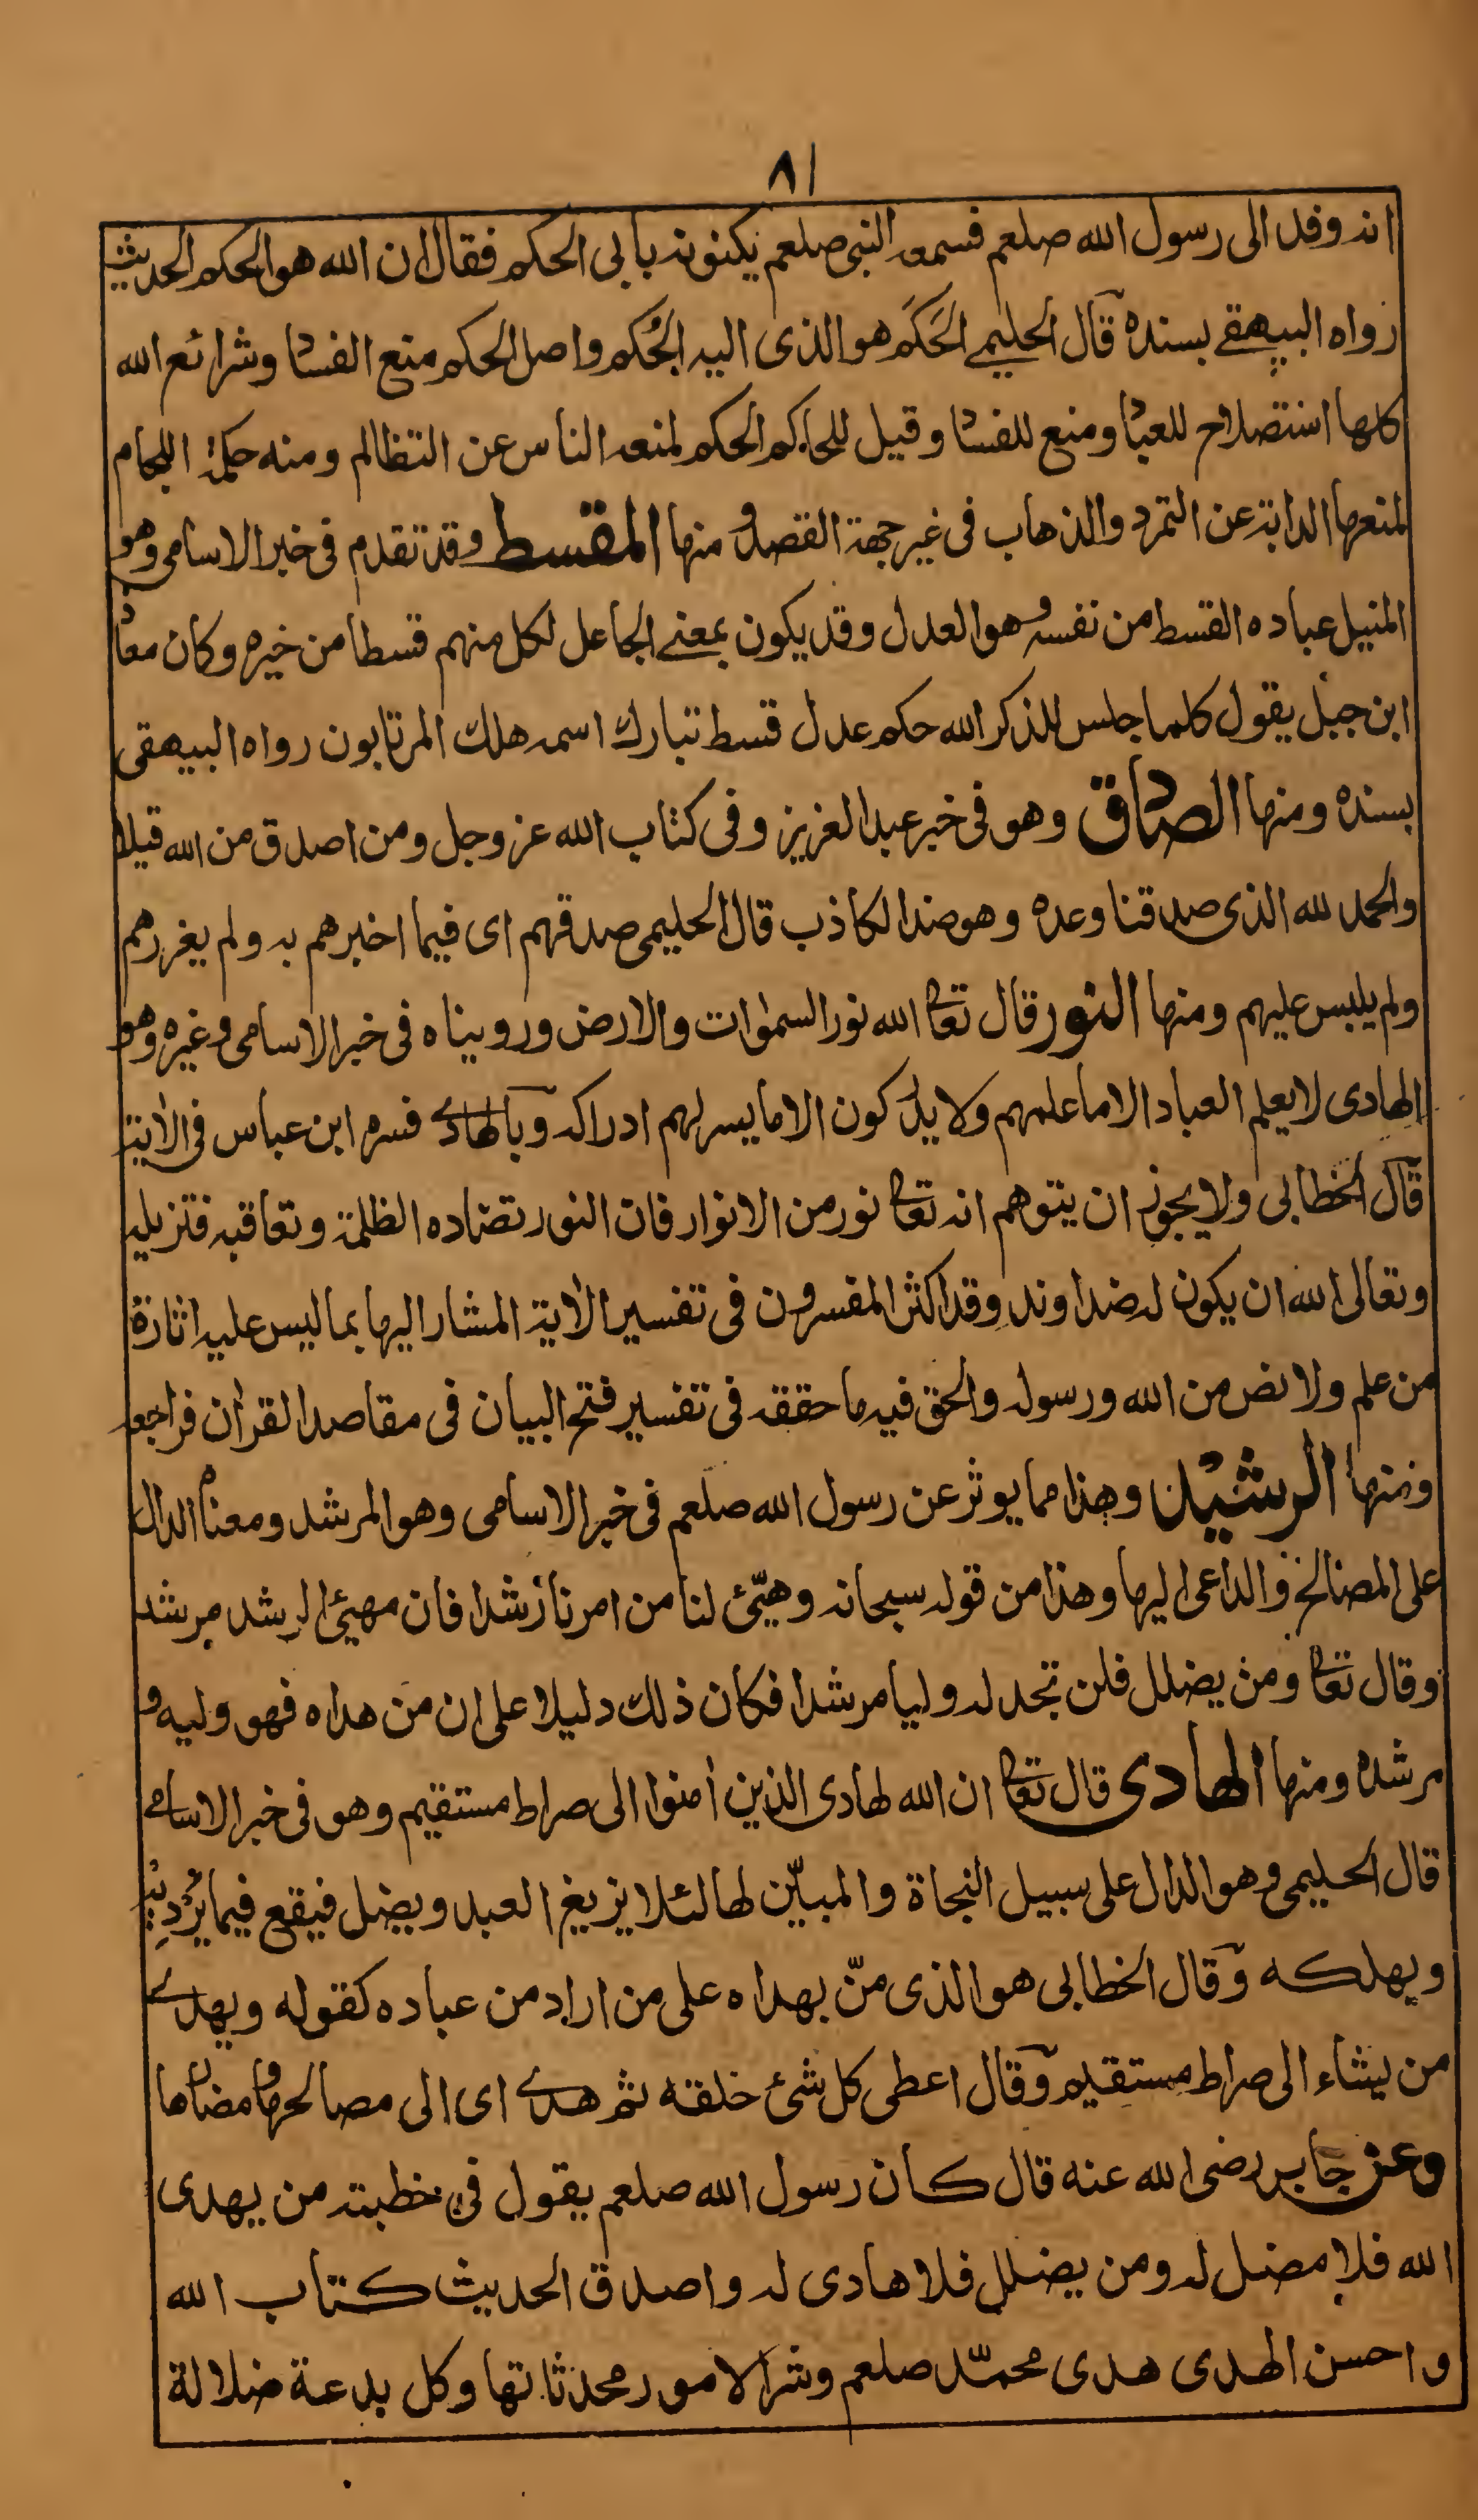 ٨١
انه وفد الى رسول الله صلعم فسمعه النبى صلعم يكنونه بابى الحكم فقال ان الله هو الحكم الحديث
رواه البيهقے بسنده قال الحليمے الحَكَم هو الذى اليه الحُكم واصل الحكم منع الفساد وشرائع الله
كلها استصلاح للعباد ومنع للفساد وقيل للحاكم الحكم لمنعه الناس عن التظالم ومنه حكمة اللجام
لمنعها الدابة عن التمرد والذهاب فى غير جهة القصد و منها المقسط وقد تقدم فى خبر الاسامى وهو
المنيل عباده القسط من نفسه وهو العدل وقد يكون بمعنے الجاعل لكل منهم قسطا من خيره وكان معاذ
ابن جبل يقول كلما جلس للذكر الله حكم عدل قسط تبارك اسمه هلك المرتابون رواه البيهقى
بسنده ومنها الصادق وهو فى خبر عبد العزيز وفى كتاب الله عز وجل ومن اصدق من الله قيلا
والحمد لله الذى صدقنا وعده وهو ضد الكاذب قال الحليمى صدقهم اى فيما اخبرهم به ولم يغررهم
ولم يلبس عليهم ومنها النور قال تعالى الله نور السمٰوات والارض وروبيناه فى خبر الاسامى وغيره وهو
الهادى لا يعلم العباد الا ما علمهم ولا يدركون الا ما يسر لهم ادراكه وبالهادے فسره ابن عباس فى الأية
قال الخطابى ولا يجوز ان يتوهم انه تعالى نور من الانوار فان النور تضاده الظلمة وتعاقبه فتزيله
وتعالى الله ان يكون له ضد اوند وقد اكثر المفسرون فى تفسير الأية المشار اليها بما ليس عليه اثارة
من علم ولا نص من الله ورسوله والحق فيه ما حققه فى تفسير فتح البيان فى مقاصد القرآن فراجعه
ومنها الرشيد وهذا مما يوثر عن رسول الله صلعم فى خبر الاسامى وهو المرشد ومعناه الدال
على المصالح والداعى اليها وهذا من قوله سبحانه وهيّئ لنا من امرنا رشدا فان مهيئ الرشد مرشد
وقال تعالى ومن يضلل فلن تجد له وليا مرشدا فكان ذلك دليلا على ان من هداه فهو وليه و
مرشده ومنها الهادى قال تعالى ان الله لهادى الذين أمنوا الى صراط مستقيم وهو فى خبر الاسامے
قال الحليمى وهو الدال على سبيل النجاة والمبيّن لها لئلا يزيغ العبد ويضل فيقع فيما يُرديه
ويهلكه وقال الخطابى هو الذى منّ بهداه على من اراد من عباده كقوله ويهدے
من يشاء الى صراط مستقيم وقال اعطى كل شئ خلقه ثم هدے اى الى مصالحها ومضارها
وعن جابر رضى الله عنه قال كان رسول الله صلعم يقول فى خطبته من يهدى
الله فلا مضل له ومن يضلل فلا هادى له واصدق الحديث كتاب الله
واحسن الهدى هدى محمّد صلعم وشر الامور محدثاتها وكل بدعة ضلالة